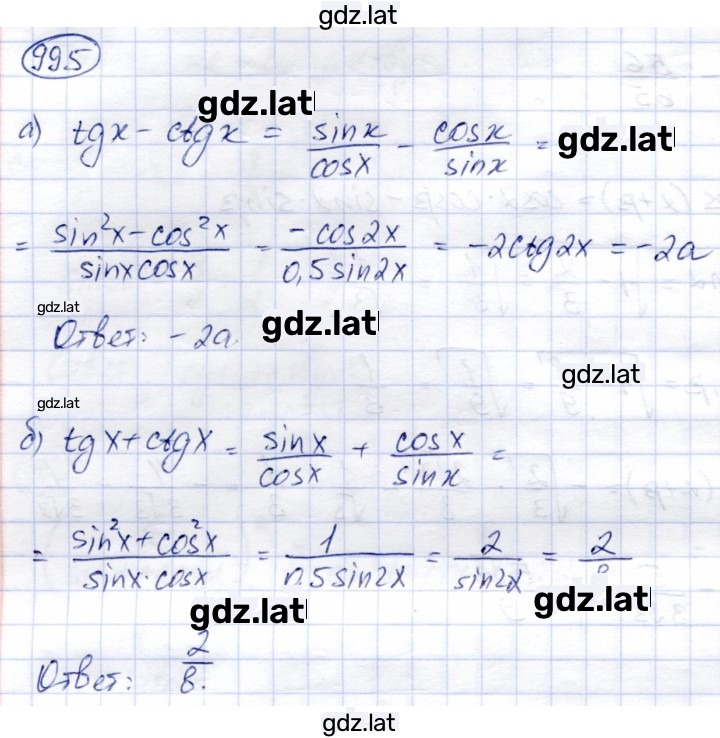 gdz.lat
995
gdz.lat
а) tgx - ctgx = sinx/cosx - cosx/sinx = gdz.lat
= (sin²x - cos²x)/(sinxcosx) = (-cos2x)/(0,5sin2x) = -2ctg2x = -2a
gdz.lat
Ответ: -2a. gdz.lat
gdz.lat
gdz.lat
б) tgx + ctgx = sinx/cosx + cosx/sinx =
= (sin²x + cos²x)/(sinx·cosx) = 1/(0,5sin2x) = 2/sin2x = 2/
gdz.lat
gdz.lat
Ответ: 2/в.
gdz.lat